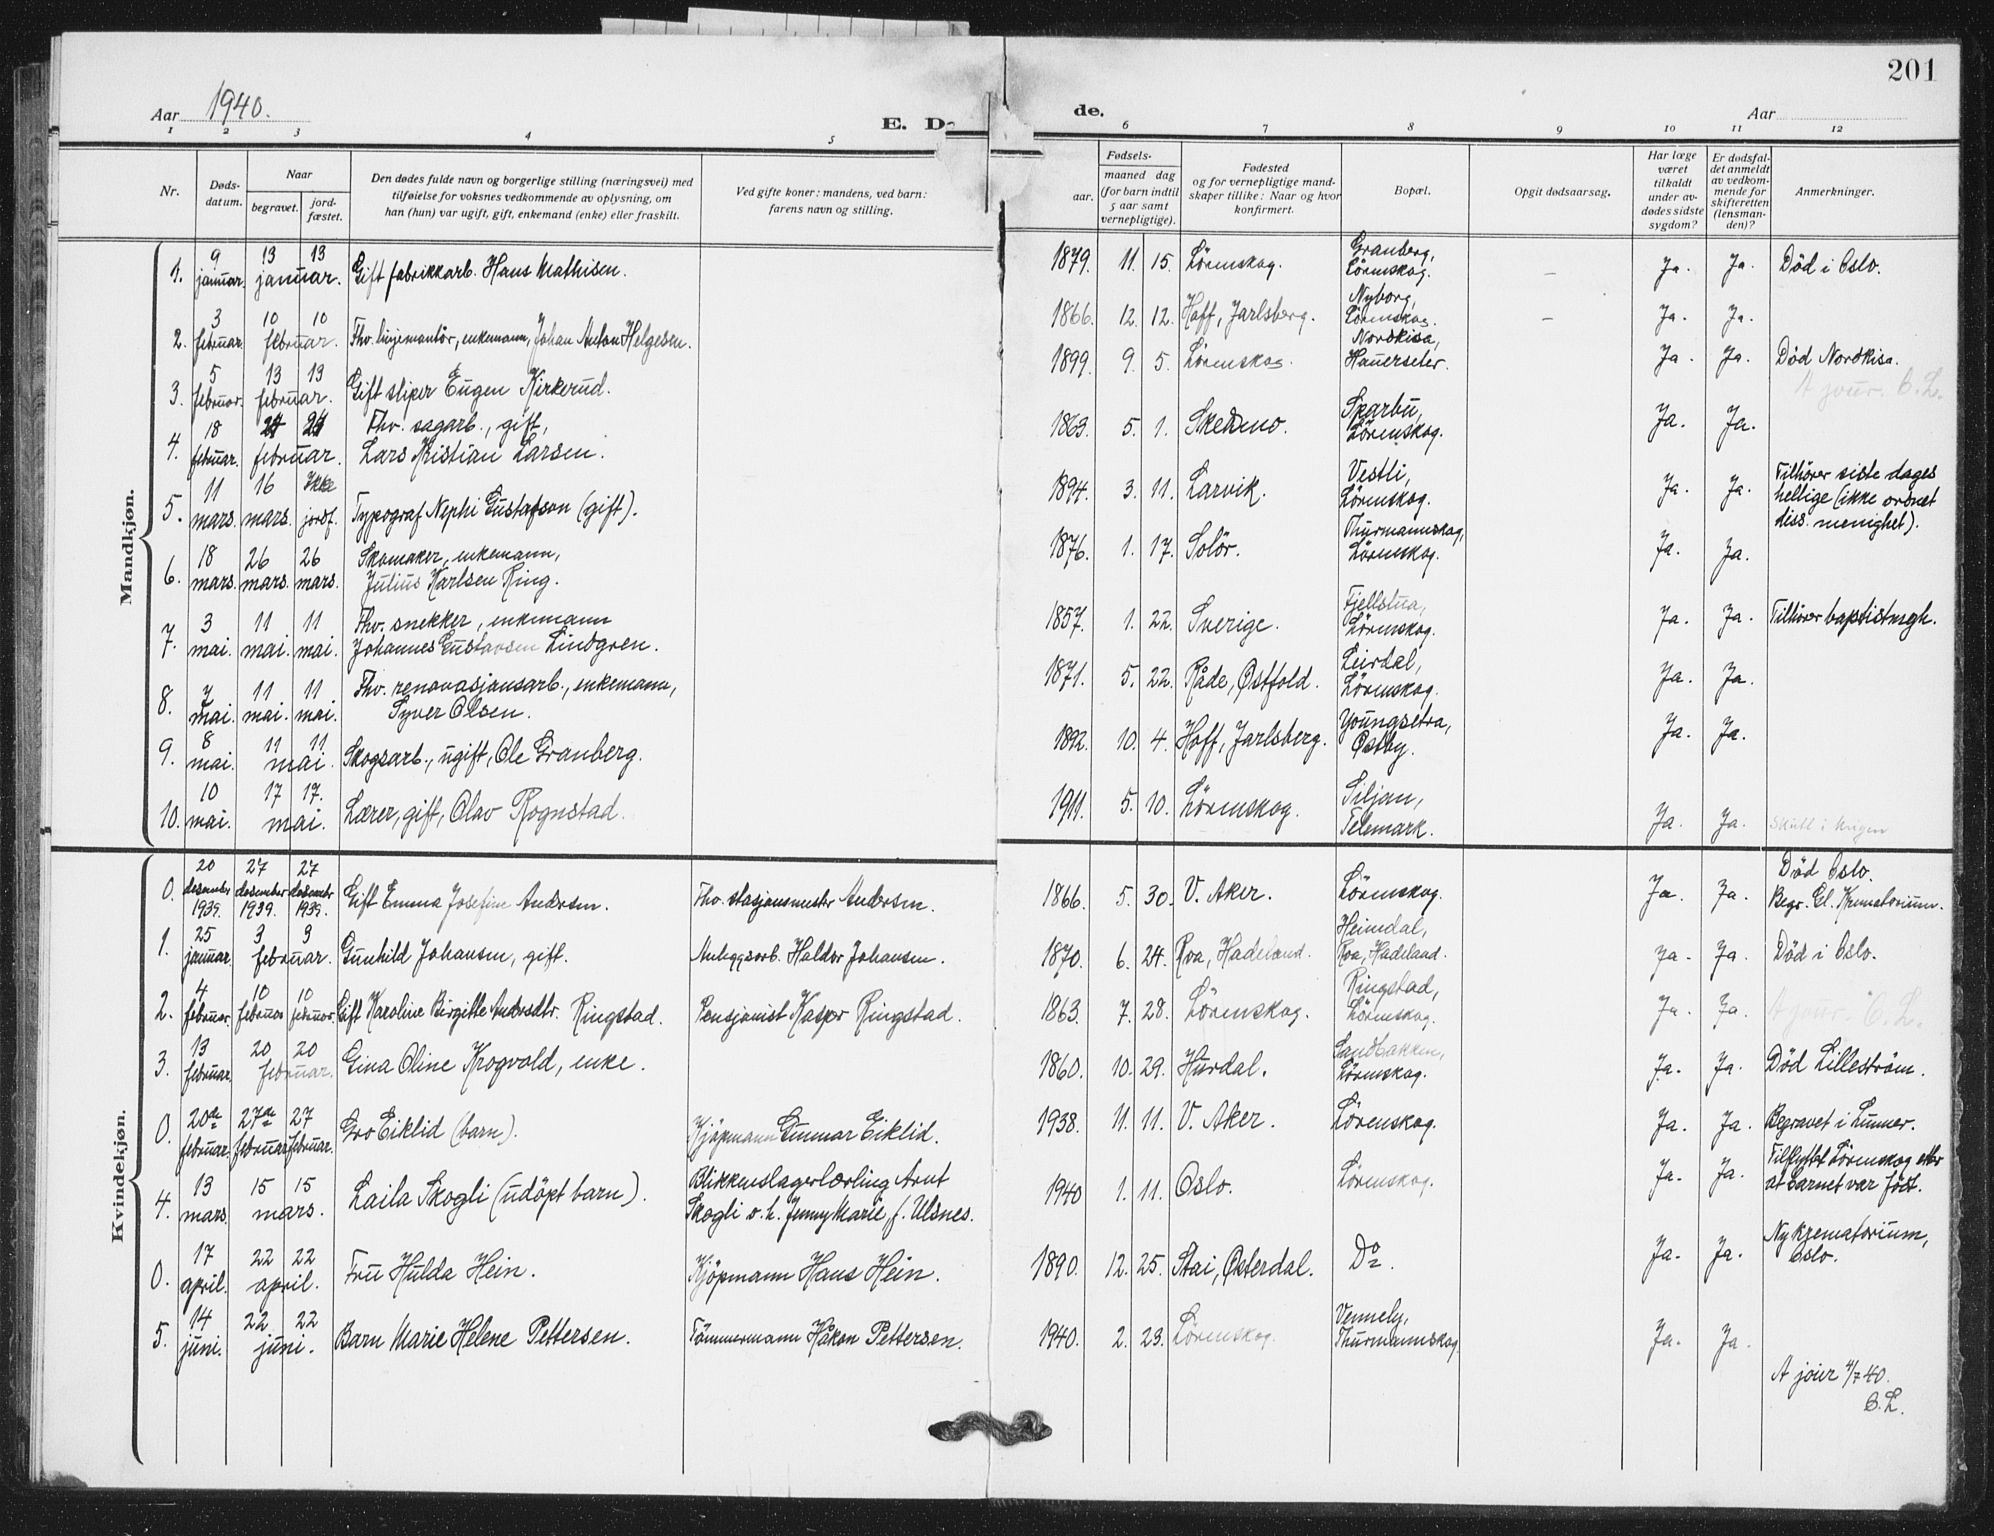 201
Aar 1940.
E. D de.
Aar
1 2 3 4 5 6 7 8 9 10 11 12
Nr.
Døds-
datum.
Naar
begravet.
jord-
fæstet.
Den dødes fulde navn og borgerlige stilling (næringsvei) med
tilføielse for voksnes vedkommende av oplysning, om
han (hun) var ugift, gift, enkemand (enke) eller fraskilt.
Ved gifte koner: mandens, ved barn:
farens navn og stilling.
Fødsels-
aar.
maaned dag
(for barn indtil
5 aar samt
vernepligtige).
Fødested
og for vernepligtige mand-
skaper tillike: Naar og hvor
konfirmert.
Bopæl.
Opgit dødsaarsag.
Har læge
været
tilkaldt
under av-
dødes sidste
sygdom?
Er dødsfal-
det anmeldt
av vedkom-
mende for
skifteretten
(lensman-
den)?
Anmerkninger.
Mandkjøn.
1. 9 januar. 13 13 januar. Gift fabrikkarb. Hans Mathisen. 1879. 11. 15. Lörenskog. Granberg, Lörenskog. – Ja. Ja. Död i Oslo.
2. 3 februar. 10 10 februar. Fhv. linjemontör, enkemann, Johan Anton Helgesen. 1866. 12. 12. Hoff, Jarlsberg. Nyborg, Lörenskog. – Ja. Ja.
3. 5 februar. 13 13 februar. Gift sliper Eugen Kirkerud. 1899. 9. 5. Lörenskog. Nordkisa, Hauerseter. Ja. Ja. Död Nordkisa.
A jour. C. L.
4. 18 februar. 24 24 februar. Fhv. sagarb., gift,
Lars Kristian Larsen. 1863. 5. 1. Skedsmo. Skarbu, Lörenskog. Ja. Ja.
5. 11 mars. 16 mars. Ikke jordf. Typograf Nephi Gustafson (gift). 1894. 3. 11. Larvik. Vestli, Lörenskog. Ja. Ja. Tilhörer siste dages
hellige (ikke ordnet
diss. menighet).
6. 18 mars. 26 mars. 26 mars. Skomaker, enkemann,
Julius Karlsen Ring. 1876. 1. 17. Solör. Thurmannskog, Lörenskog. Ja. Ja.
7. 3 mai. 11 mai. 11 mai. Fhv. snekker, enkemann
Johannes Gustavsen Lindgren. 1857. 1. 22. Sverige. Fjellstua, Lörenskog. Ja. Ja. Tilhörer baptistmgh.
8. 7 mai. 11 mai. 11 mai. Fhv. renovasjonsarb., enkemann,
Syver Olsen. 1871. 5. 22. Råde, Østfold. Leirdal, Lörenskog. Ja. Ja.
9. 8 mai. 11 11 mai. Skogsarb., ugift, Ole Granberg. 1892. 10. 4. Hoff, Jarlsberg. Youngsetra, Østby. Ja. Ja.
10. 10 mai. 17 17. mai. Lærer, gift, Olav Rognstad. 1911. 5. 10. Lörenskog. Siljan, Telemark. Ja. Ja. Skutt i krigen
Kvindekjøn.
0. 20 desember 1939. 27 desember 1939. 27 desember 1939. Gift Emma Josefine Andersen. Fhv. stasjonsmester Andersen. 1866. 5. 30. V. Aker. Lörenskog. Ja. Ja. Död Oslo.
Begr. Gl. Krematorium.
1. 25 januar. 3 3 februar. Gunhild Johansen, gift. Anleggsarb. Haldor Johansen. 1870. 6. 24. Roa, Hadeland. Heimdal, Roa, Hadeland. Ja. Ja. Död i Oslo.
2. 4 februar. 10 februar 10 februar. Gift Karoline Birgitte Andersdtr. Ringstad. Pensjonist Kasper Ringstad. 1863. 7. 28. Lörenskog. Ringstad, Lörenskog. Ja. Ja. A jour. C. L.
3. 13 februar. 20 20 februar. Gina Oline Krogvold, enke. 1860. 10. 29. Hurdal. Sandbakken, Lörenskog. Ja. Ja. Död Lilleström.
0. 20de februar. 27de februar 27 februar. Gro Eiklid (barn). Kjöpmann Gunnar Eiklid. 1938. 11. 11. V. Aker. Lörenskog. Ja. Ja. Begravet i Lunner.
4. 13 mars. 15 15 mars. Laila Skogli (udöpt barn). Blikkenslagerlærling Arnt
Skogli o. h. Jenny Marie, f. Ulsnes. 1940 1. 11. Oslo. Lörenskog. Ja. Ja. Tilflyttet Lörenskog etter
at barnet var født.
0. 17 april. 22 22 april. Fru Hulda Hein. Kjöpmann Hans Hein. 1890. 12. 25. Stai, Østerdal. Do. Ja. Ja. Ny krematorium,
Oslo.
5. 14 juni. 22 22 juni. Barn Marie Helene Pettersen. Tömmermann Håkon Pettersen. 1940. 2. 23. Lörenskog. Vennely, Thurmannskog. Ja. Ja.
A jour 4/7 40.
C. L.